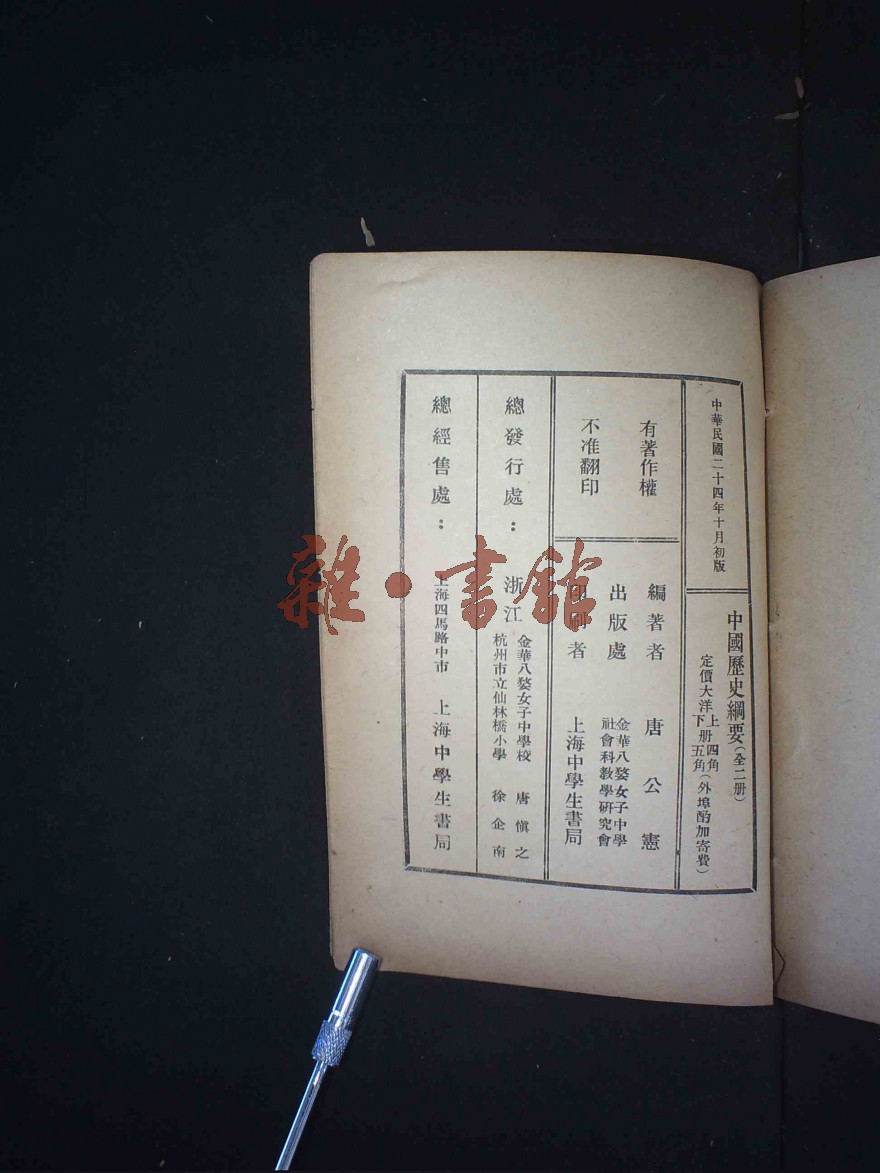 中華民國二十四年十月初版
中國歷史綱要（全二册）
定價大洋上册四角下册五角（外埠酌加寄費）
有著作權
不准翻印
編著者 唐公憲
出版處 金華八婺女子中學社會科教學研究會
印刷者 上海中學生書局
總發行處：浙江
金華八婺女子中學校 唐愼之
杭州市立仙林橋小學 徐企南
總經售處：上海四馬路中市 上海中學生書局
雜·書館